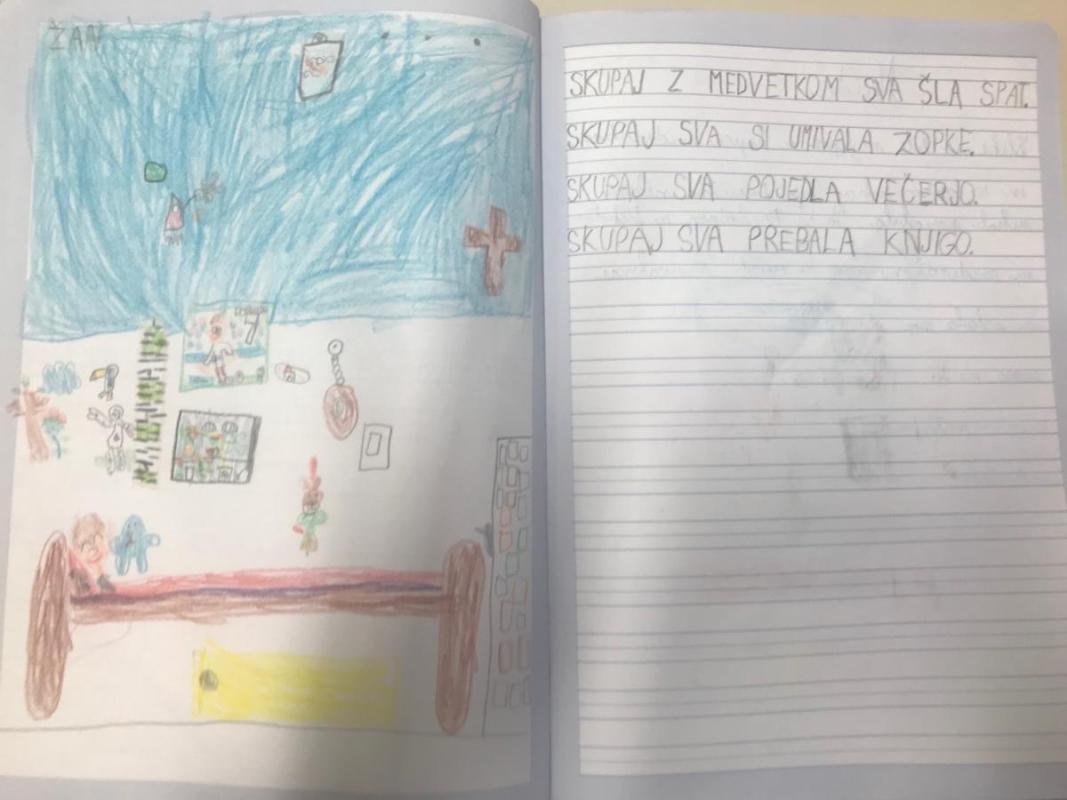 ŽAN
7
SKUPAJ Z MEDVETKOM SVA ŠLA SPAT.
SKUPAJ SVA SI UMIVALA ZOPKE.
SKUPAJ SVA POJEDLA VEČERJO.
SKUPAJ SVA PREBALA KNJIGO.